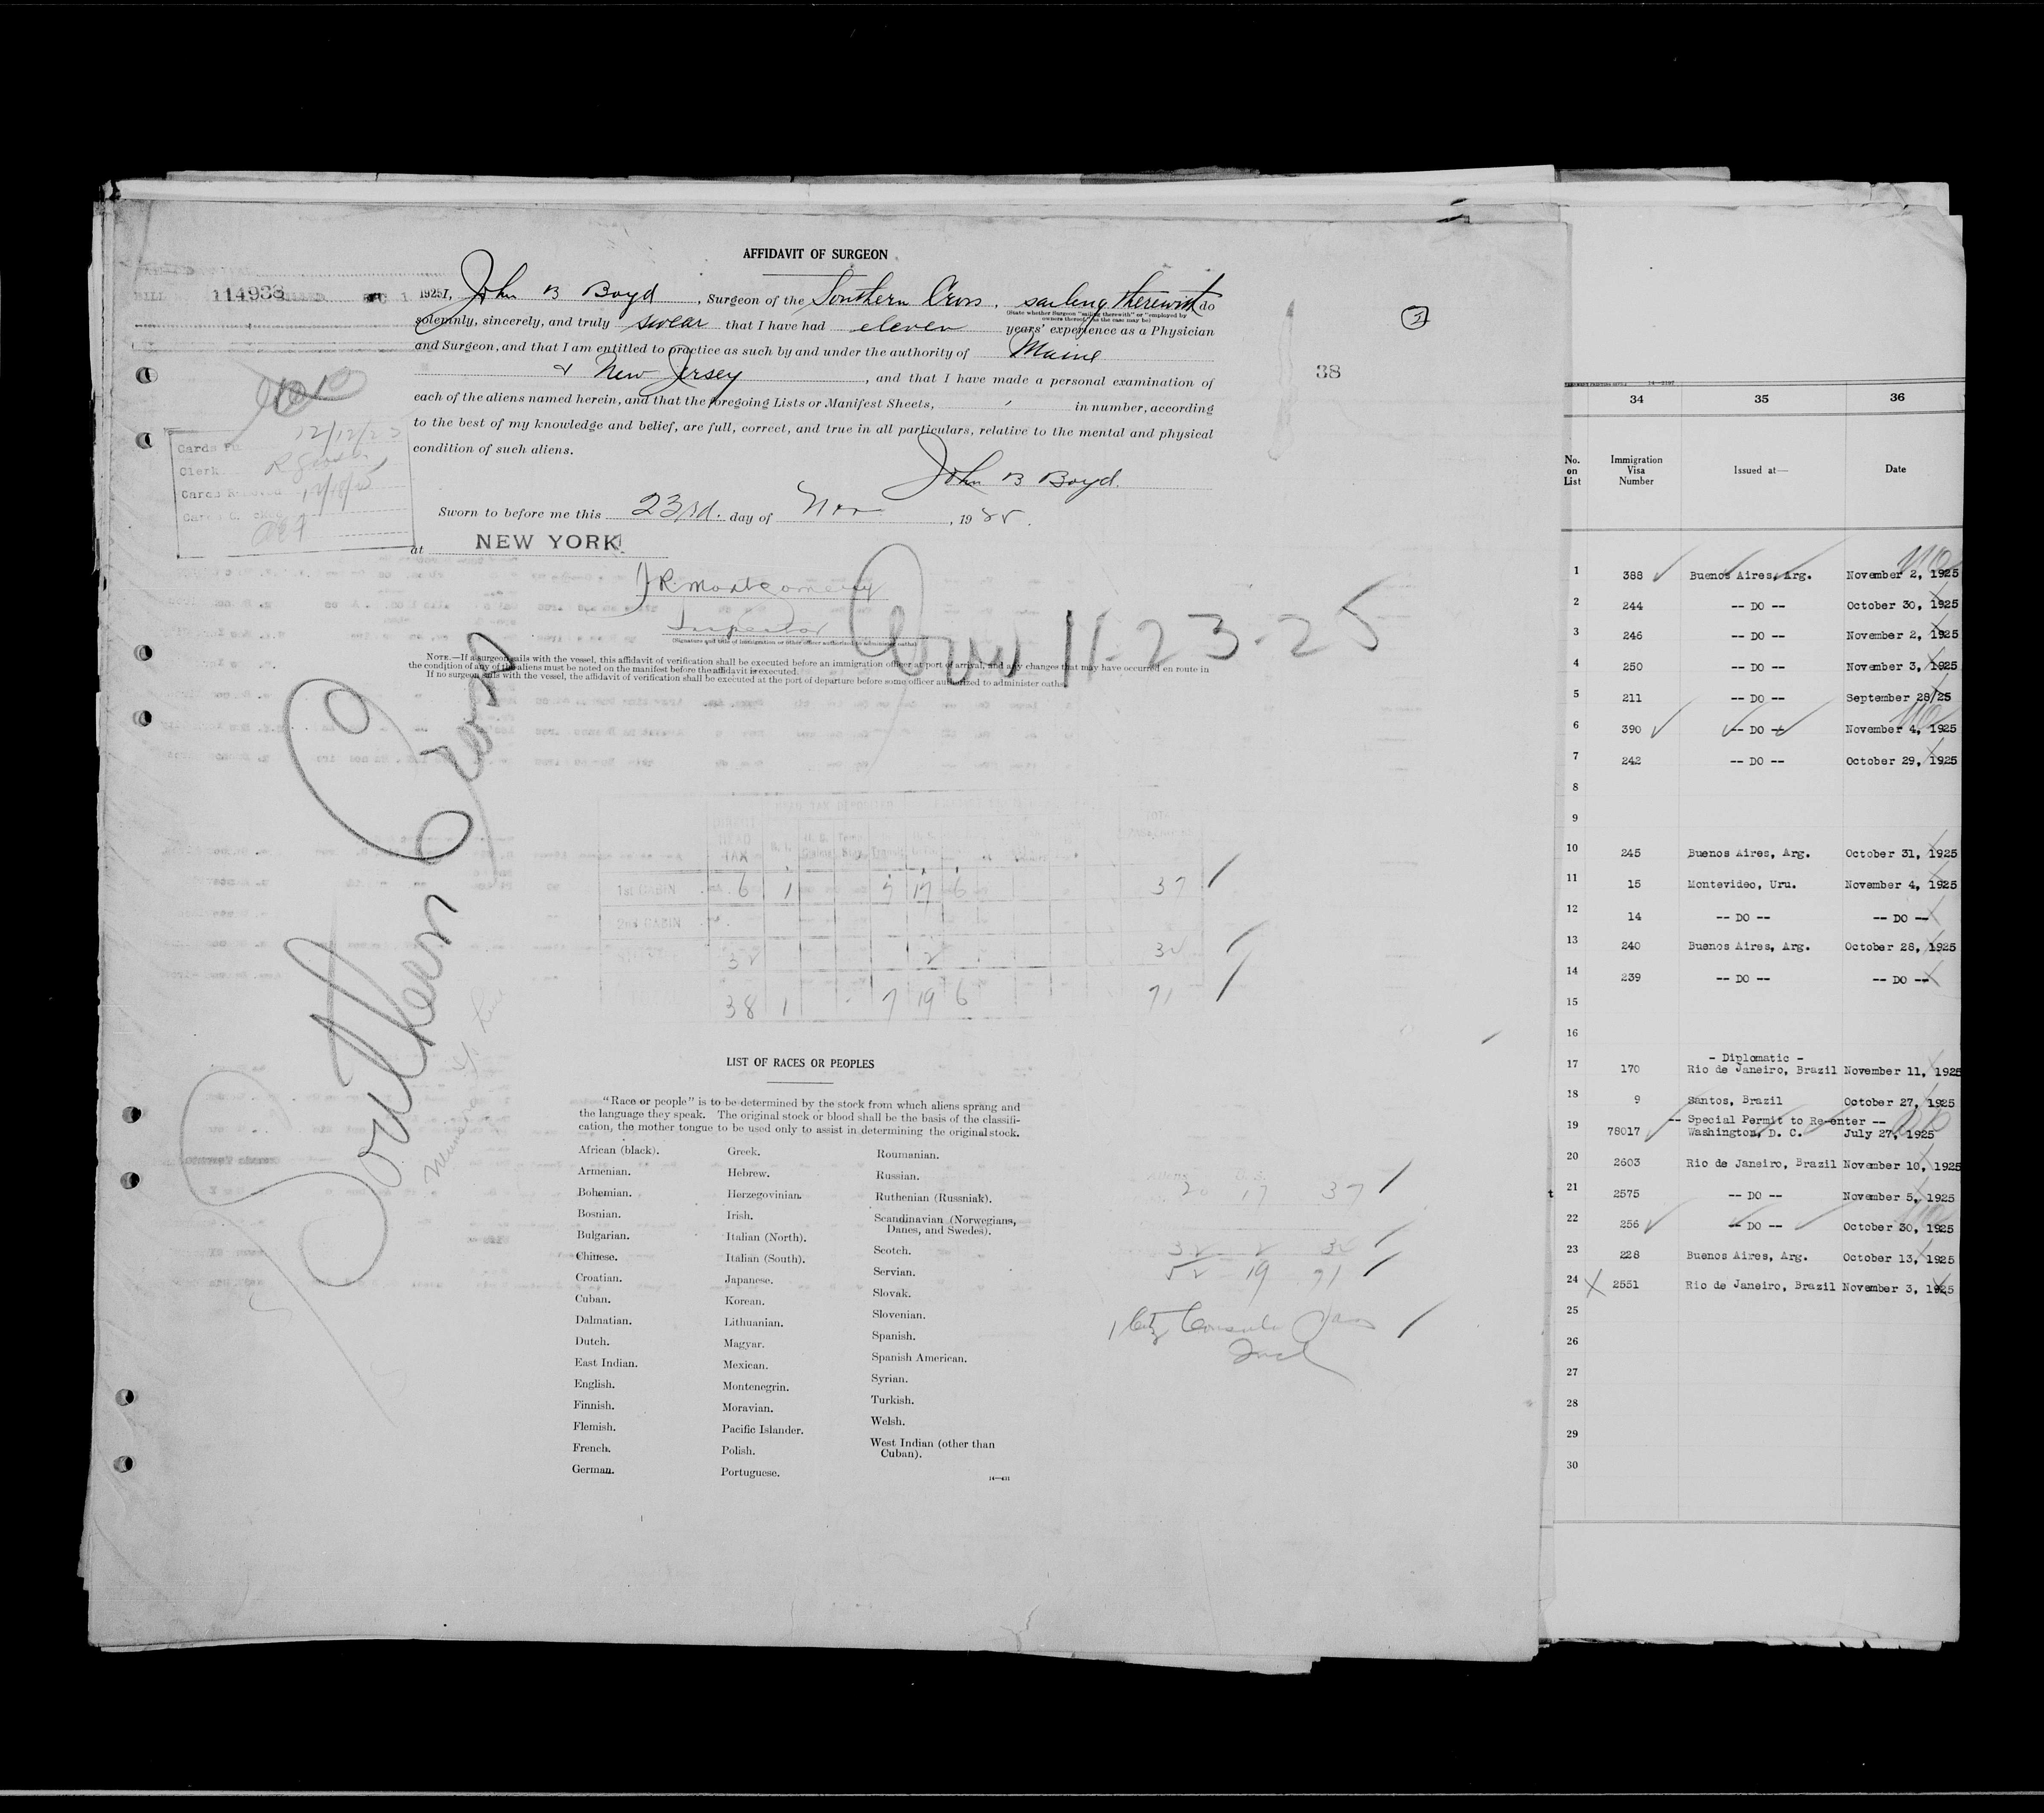 AFFIDAVIT OF SURGEON
114938
1925 I, John B Boyd, Surgeon of the Southern Cross, sailing therewith do
(State whether Surgeon "sailing therewith" or "employed by
owners thereof," as the case may be)
solemnly, sincerely, and truly swear that I have had eleven years' experience as a Physician
and Surgeon, and that I am entitled to practice as such by and under the authority of Maine
& New Jersey, and that I have made a personal examination of
each of the aliens named herein, and that the foregoing Lists or Manifest Sheets, in number, according
to the best of my knowledge and belief, are full, correct, and true in all particulars, relative to the mental and physical
condition of such aliens.
John B Boyd.
Sworn to before me this 23rd. day of Nov, 1925.
at NEW YORK
R. Montgomery
Inspector
(Signature and title of immigration or other officer authorized to administer oaths)
38
Clerk
Arr 11-23-25
NOTE.—If a surgeon sails with the vessel, this affidavit of verification shall be executed before an immigration officer at port of arrival, and any changes that may have occurred en route in
the condition of any of the aliens must be noted on the manifest before the affidavit is executed.
If no surgeon sails with the vessel, the affidavit of verification shall be executed at the port of departure before some officer authorized to administer oaths.
Southern Cross
DIRECT HEAD TAX
1st CABIN 6 1 7 17 6 37
2nd CABIN
32 2 32
38 1 7 19 6 71
LIST OF RACES OR PEOPLES
"Race or people" is to be determined by the stock from which aliens sprang and
the language they speak. The original stock or blood shall be the basis of the classifi-
cation, the mother tongue to be used only to assist in determining the original stock.
African (black).
Armenian.
Bohemian.
Bosnian.
Bulgarian.
Chinese.
Croatian.
Cuban.
Dalmatian.
Dutch.
East Indian.
English.
Finnish.
Flemish.
French.
German.
Greek.
Hebrew.
Herzegovinian.
Irish.
Italian (North).
Italian (South).
Japanese.
Korean.
Lithuanian.
Magyar.
Mexican.
Montenegrin.
Moravian.
Pacific Islander.
Polish.
Portuguese.
Roumanian.
Russian.
Ruthenian (Russniak).
Scandinavian (Norwegians,
Danes, and Swedes).
Scotch.
Servian.
Slovak.
Slovenian.
Spanish.
Spanish American.
Syrian.
Turkish.
Welsh.
West Indian (other than
Cuban).
20 17 37
52 19 71
34 35 36
No. on List Immigration Visa Number Issued at— Date
1 388 Buenos Aires, Arg. November 2, 1925
2 244 -- DO -- October 30, 1925
3 246 -- DO -- November 2, 1925
4 250 -- DO -- November 3, 1925
5 211 -- DO -- September 28/25
6 390 -- DO -- November 4, 1925
7 242 -- DO -- October 29, 1925
8
9
10 245 Buenos Aires, Arg. October 31, 1925
11 15 Montevideo, Uru. November 4, 1925
12 14 -- DO -- -- DO --
13 240 Buenos Aires, Arg. October 28, 1925
14 239 -- DO -- -- DO --
15
16
- Diplomatic -
17 170 Rio de Janeiro, Brazil November 11, 1925
18 9 Santos, Brazil October 27, 1925
-- Special Permit to Re-enter --
19 78017 Washington, D. C. July 27, 1925
20 2603 Rio de Janeiro, Brazil November 10, 1925
21 2575 -- DO -- November 5, 1925
22 256 -- DO -- October 30, 1925
23 228 Buenos Aires, Arg. October 13, 1925
24 2551 Rio de Janeiro, Brazil November 3, 1925
25
26
27
28
29
30